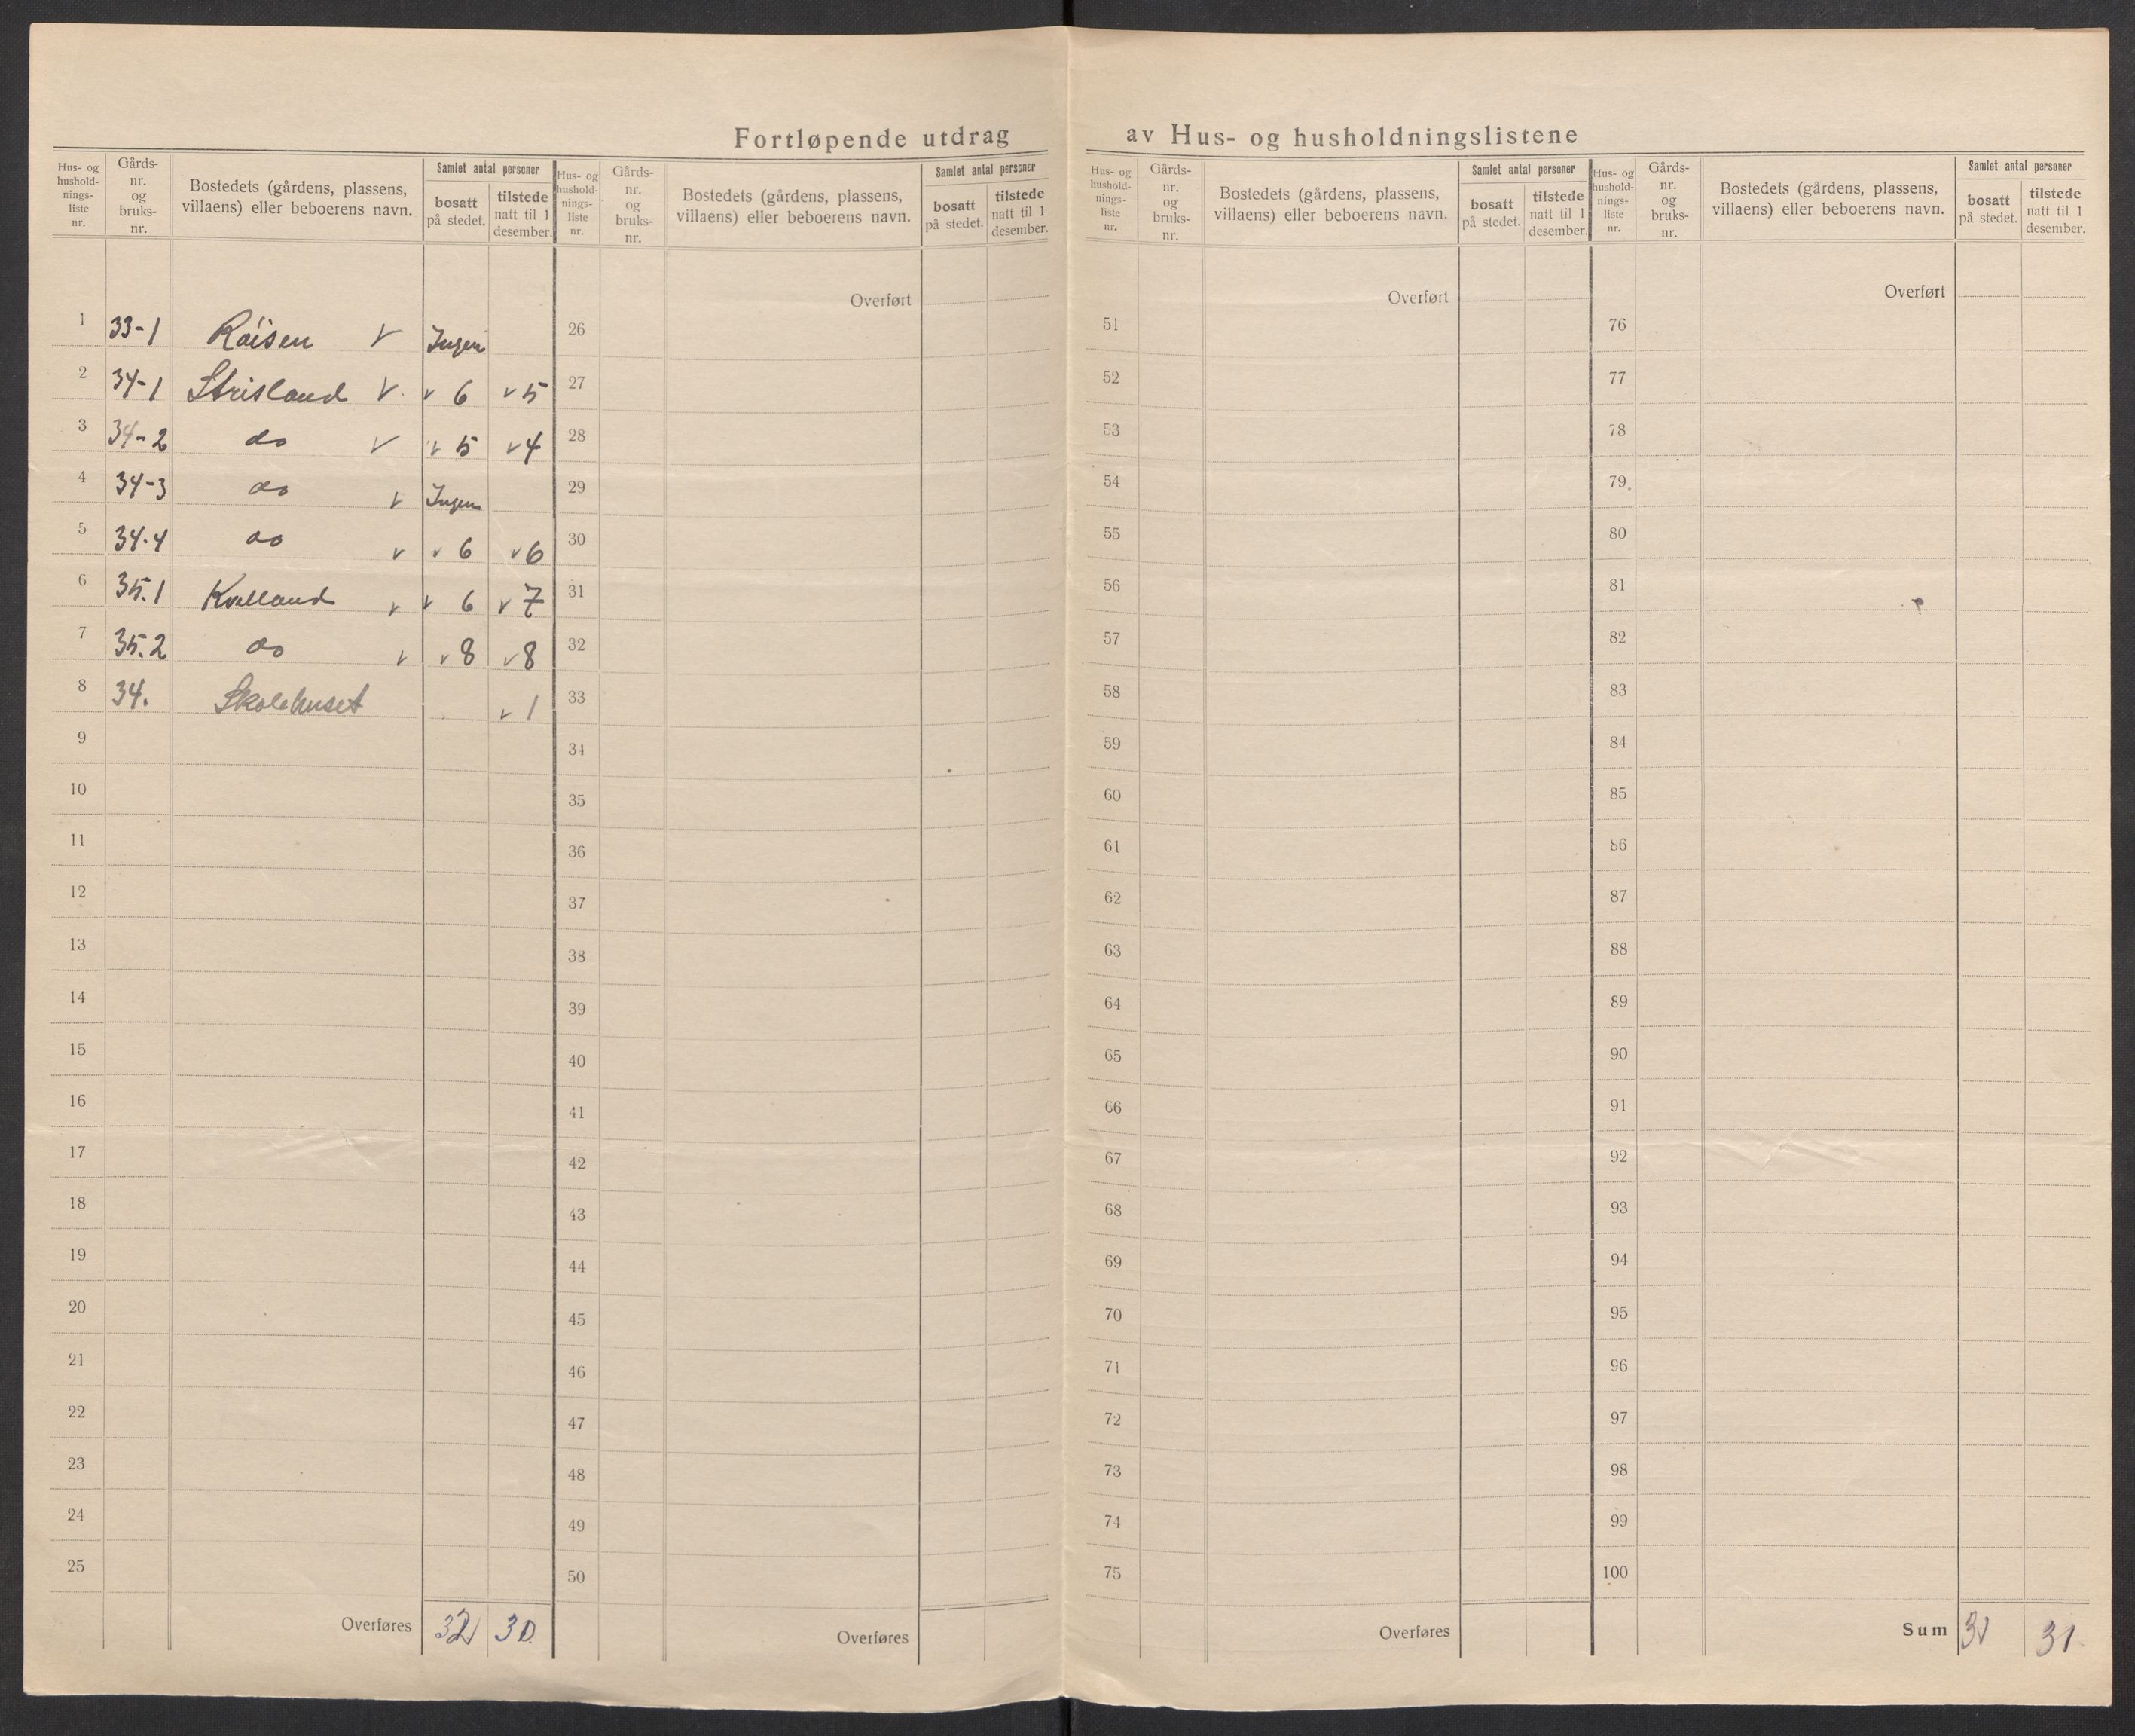 Fortløpende utdrag av Hus- og husholdningslistene
Hus- og hushold- nings- liste nr.
Gårds- nr. og bruks- nr.
Bostedets (gårdens, plassens, villaens) eller beboerens navn.
Samlet antal personer
bosatt på stedet.
tilstede natt til 1 desember.
Hus- og hushold- nings- liste nr.
Gårds- nr. og bruks- nr.
Bostedets (gårdens, plassens, villaens) eller beboerens navn.
Samlet antal personer
bosatt på stedet.
tilstede natt til 1 desember.
Hus- og hushold- nings- liste nr.
Gårds- nr. og bruks- nr.
Bostedets (gårdens, plassens, villaens) eller beboerens navn.
Samlet antal personer
bosatt på stedet.
tilstede natt til 1 desember.
Hus- og hushold- nings- liste nr.
Gårds- nr. og bruks- nr.
Bostedets (gårdens, plassens, villaens) eller beboerens navn.
Samlet antal personer
bosatt på stedet.
tilstede natt til 1 desember.
1 33-1 Röisen v Ingen
2 34-1 Strisland v v 6 v 5
3 34-2 do v v 5 v 4
4 34-3 do v Ingen
5 34.4 do v v 6 v 6
6 35.1 Kvelland v v 6 v 7
7 35.2 do v v 8 v 8
8 34. Skolehuset v 1
9
10
11
12
13
14
15
16
17
18
19
20
21
22
23
24
25
Overføres 30
Overført
26
27
28
29
30
31
32
33
34
35
36
37
38
39
40
41
42
43
44
45
46
47
48
49
50
Overføres
Overført
51
52
53
54
55
56
57
58
59
60
61
62
63
64
65
66
67
68
69
70
71
72
73
74
75
Overføres
Overført
76
77
78
79
80
81
82
83
84
85
86
87
88
89
90
91
92
93
94
95
96
97
98
99
100
Sum 31